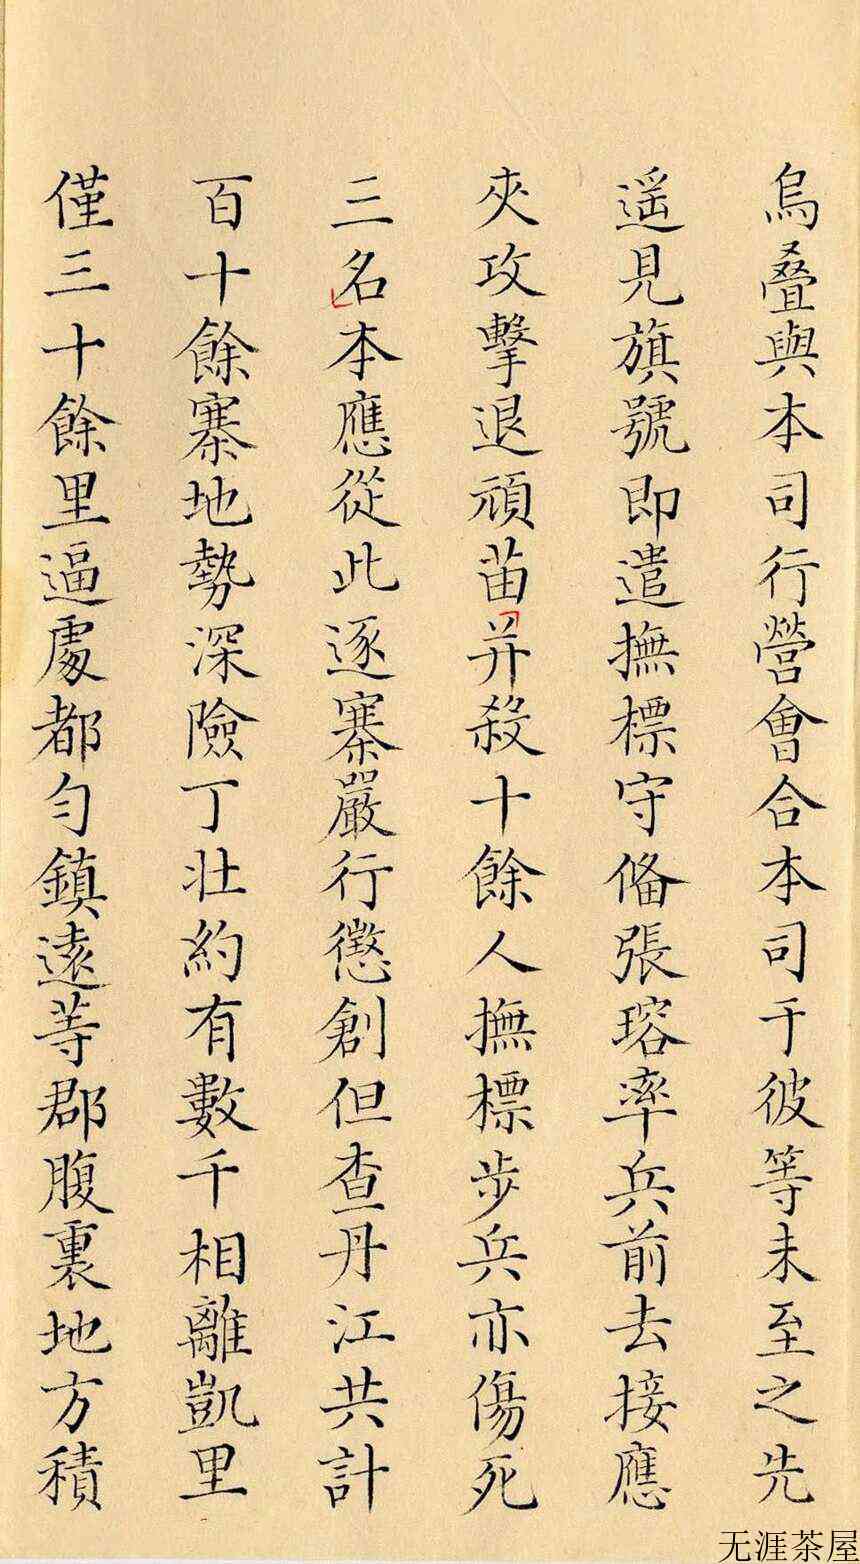 烏疊與本司行營會合本司于彼等未至之先
遥見旗號即遣撫標守俻張瑢率兵前去接應
夾攻擊退頑苗并殺十餘人撫標步兵亦傷死
三名本應從此逐寨嚴行懲創但查丹江共計
百十餘寨地勢深險丁壯約有數千相離凱里
僅三十餘里逼處都勻鎮遠等郡腹裏地方積
无涯茶屋